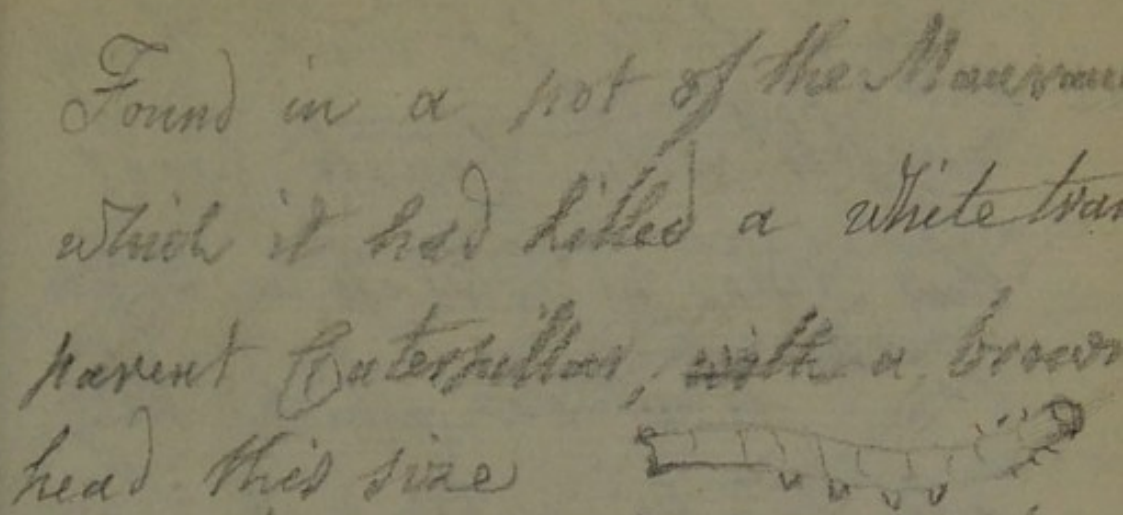 Found in a pot of the
which it had killed a white tran
parent Caterpillar, with a brown
head this size